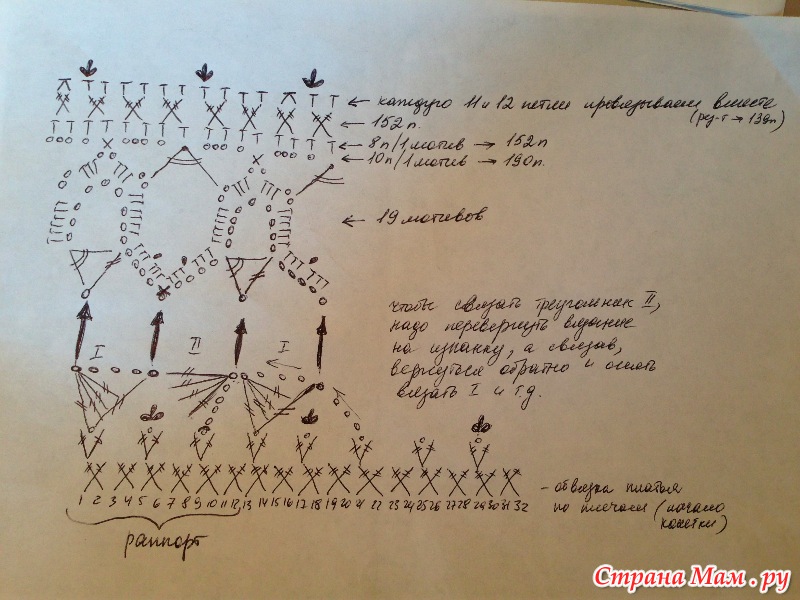 ← каждую 11 и 12 петли провязываем вместе
(рез-т → 139п)
← 152 п.
← 8п/1 мотив → 152п
← 10п/1 мотив → 190п.
← 19 мотивов
чтобы связать треугольник II,
надо перевернуть вязание
на изнанку, а связав,
вернуться обратно и опять
вязать I и т.д.
I II I
1 2 3 4 5 6 7 8 9 10 11 12 13 14 15 16 17 18 19 20 21 22 23 24 25 26 27 28 29 30 31 32
- обвязка платья
по плечам (начало
кокетки)
раппорт
Страна Мам.ру